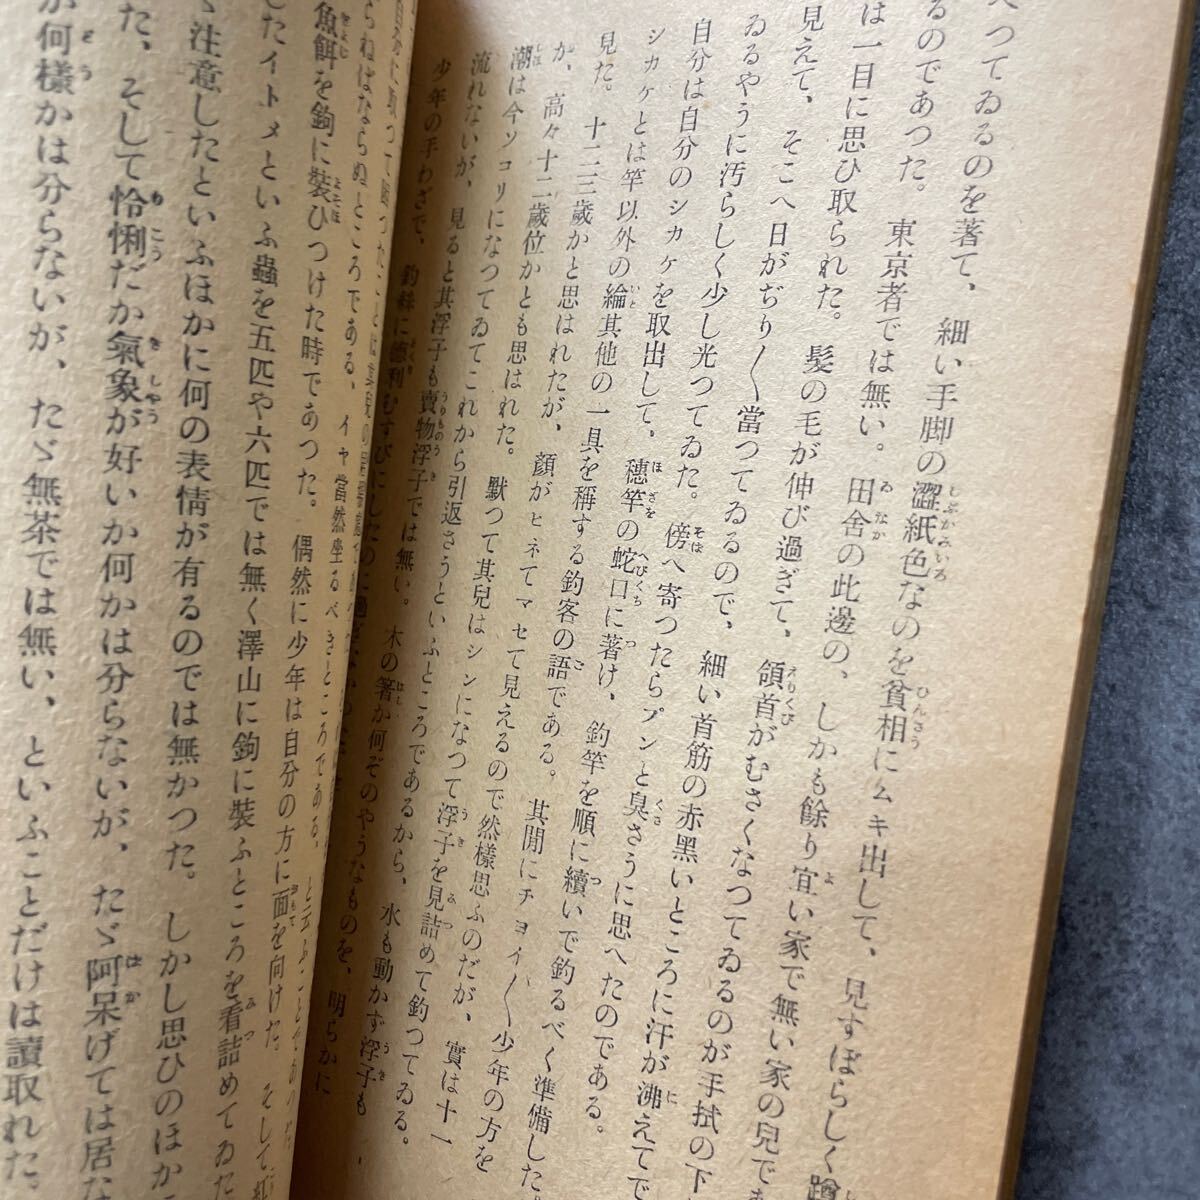 へつてゐるのを著て、細い手脚の澀紙色なのを貧相にムキ出して、見すぼらしく蹲
るのであつた。東京者では無い。田舍の此邊の、しかも餘り宜い家で無い家の兒であ
は一目に思ひ取られた。髮の毛が伸び過ぎて、領首がむさくなつてゐるのが手拭の下
見えて、そこへ日がぢり〱當つてゐるので、細い首筋の赤黑いところに汗が沸えてで
ゐるやうに汚らしく少し光つてゐた。傍へ寄つたらプンと臭さうに思へたのである。
自分は自分のシカケを取出して、穗竿の蛇口に著け、釣竿を順に續いで釣るべく準備した。
シカケとは竿以外の綸其他の一具を稱する釣客の語である。其間にチヨイ〱少年の方を
見た。十二三歲かと思はれたが、顏がヒネてマセて見えるので然樣思ふのだが、實は十一
か、高々十二歲位かとも思はれた。默つて其兒はシンになつて浮子を見詰めて釣つてゐる。
潮は今ソコリになつてゐてこれから引返さうといふところであるから、水も動かず浮子も
流れないが、見ると其浮子も賣物浮子では無い。木の箸か何ぞのやうなものを、明らかに
少年の手わざで、釣絲に德利むすびにしたのに過ぎ
らねばならぬところである、イヤ當然座るべきところである、と云ふことであつた
魚餌を鉤に裝ひつけた時であつた。偶然に少年は自分の方に面を向けた。そして
したイトメといふ蟲を五匹や六匹では無く澤山に鉤に裝ふところを看詰めてゐた
注意したといふほかに何の表情が有るのでは無かつた。しかし思ひのほか
た、そして怜悧だか氣象が好いか何かは分らないが、たゞ阿呆げては居な
か何樣かは分らないが、たゞ無茶では無い、といふことだけは讀取れた。